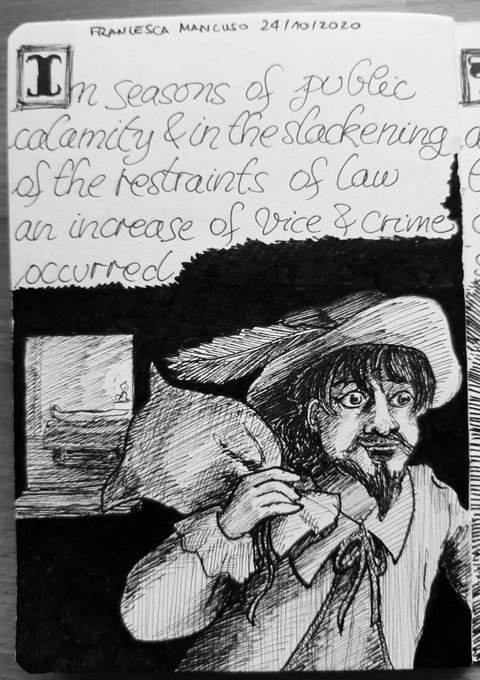 FRANCESCA MANCUSO 24/10/2020
In seasons of public
calamity & in the slackening
of the restraints of law
an increase of vice & crime
occurred